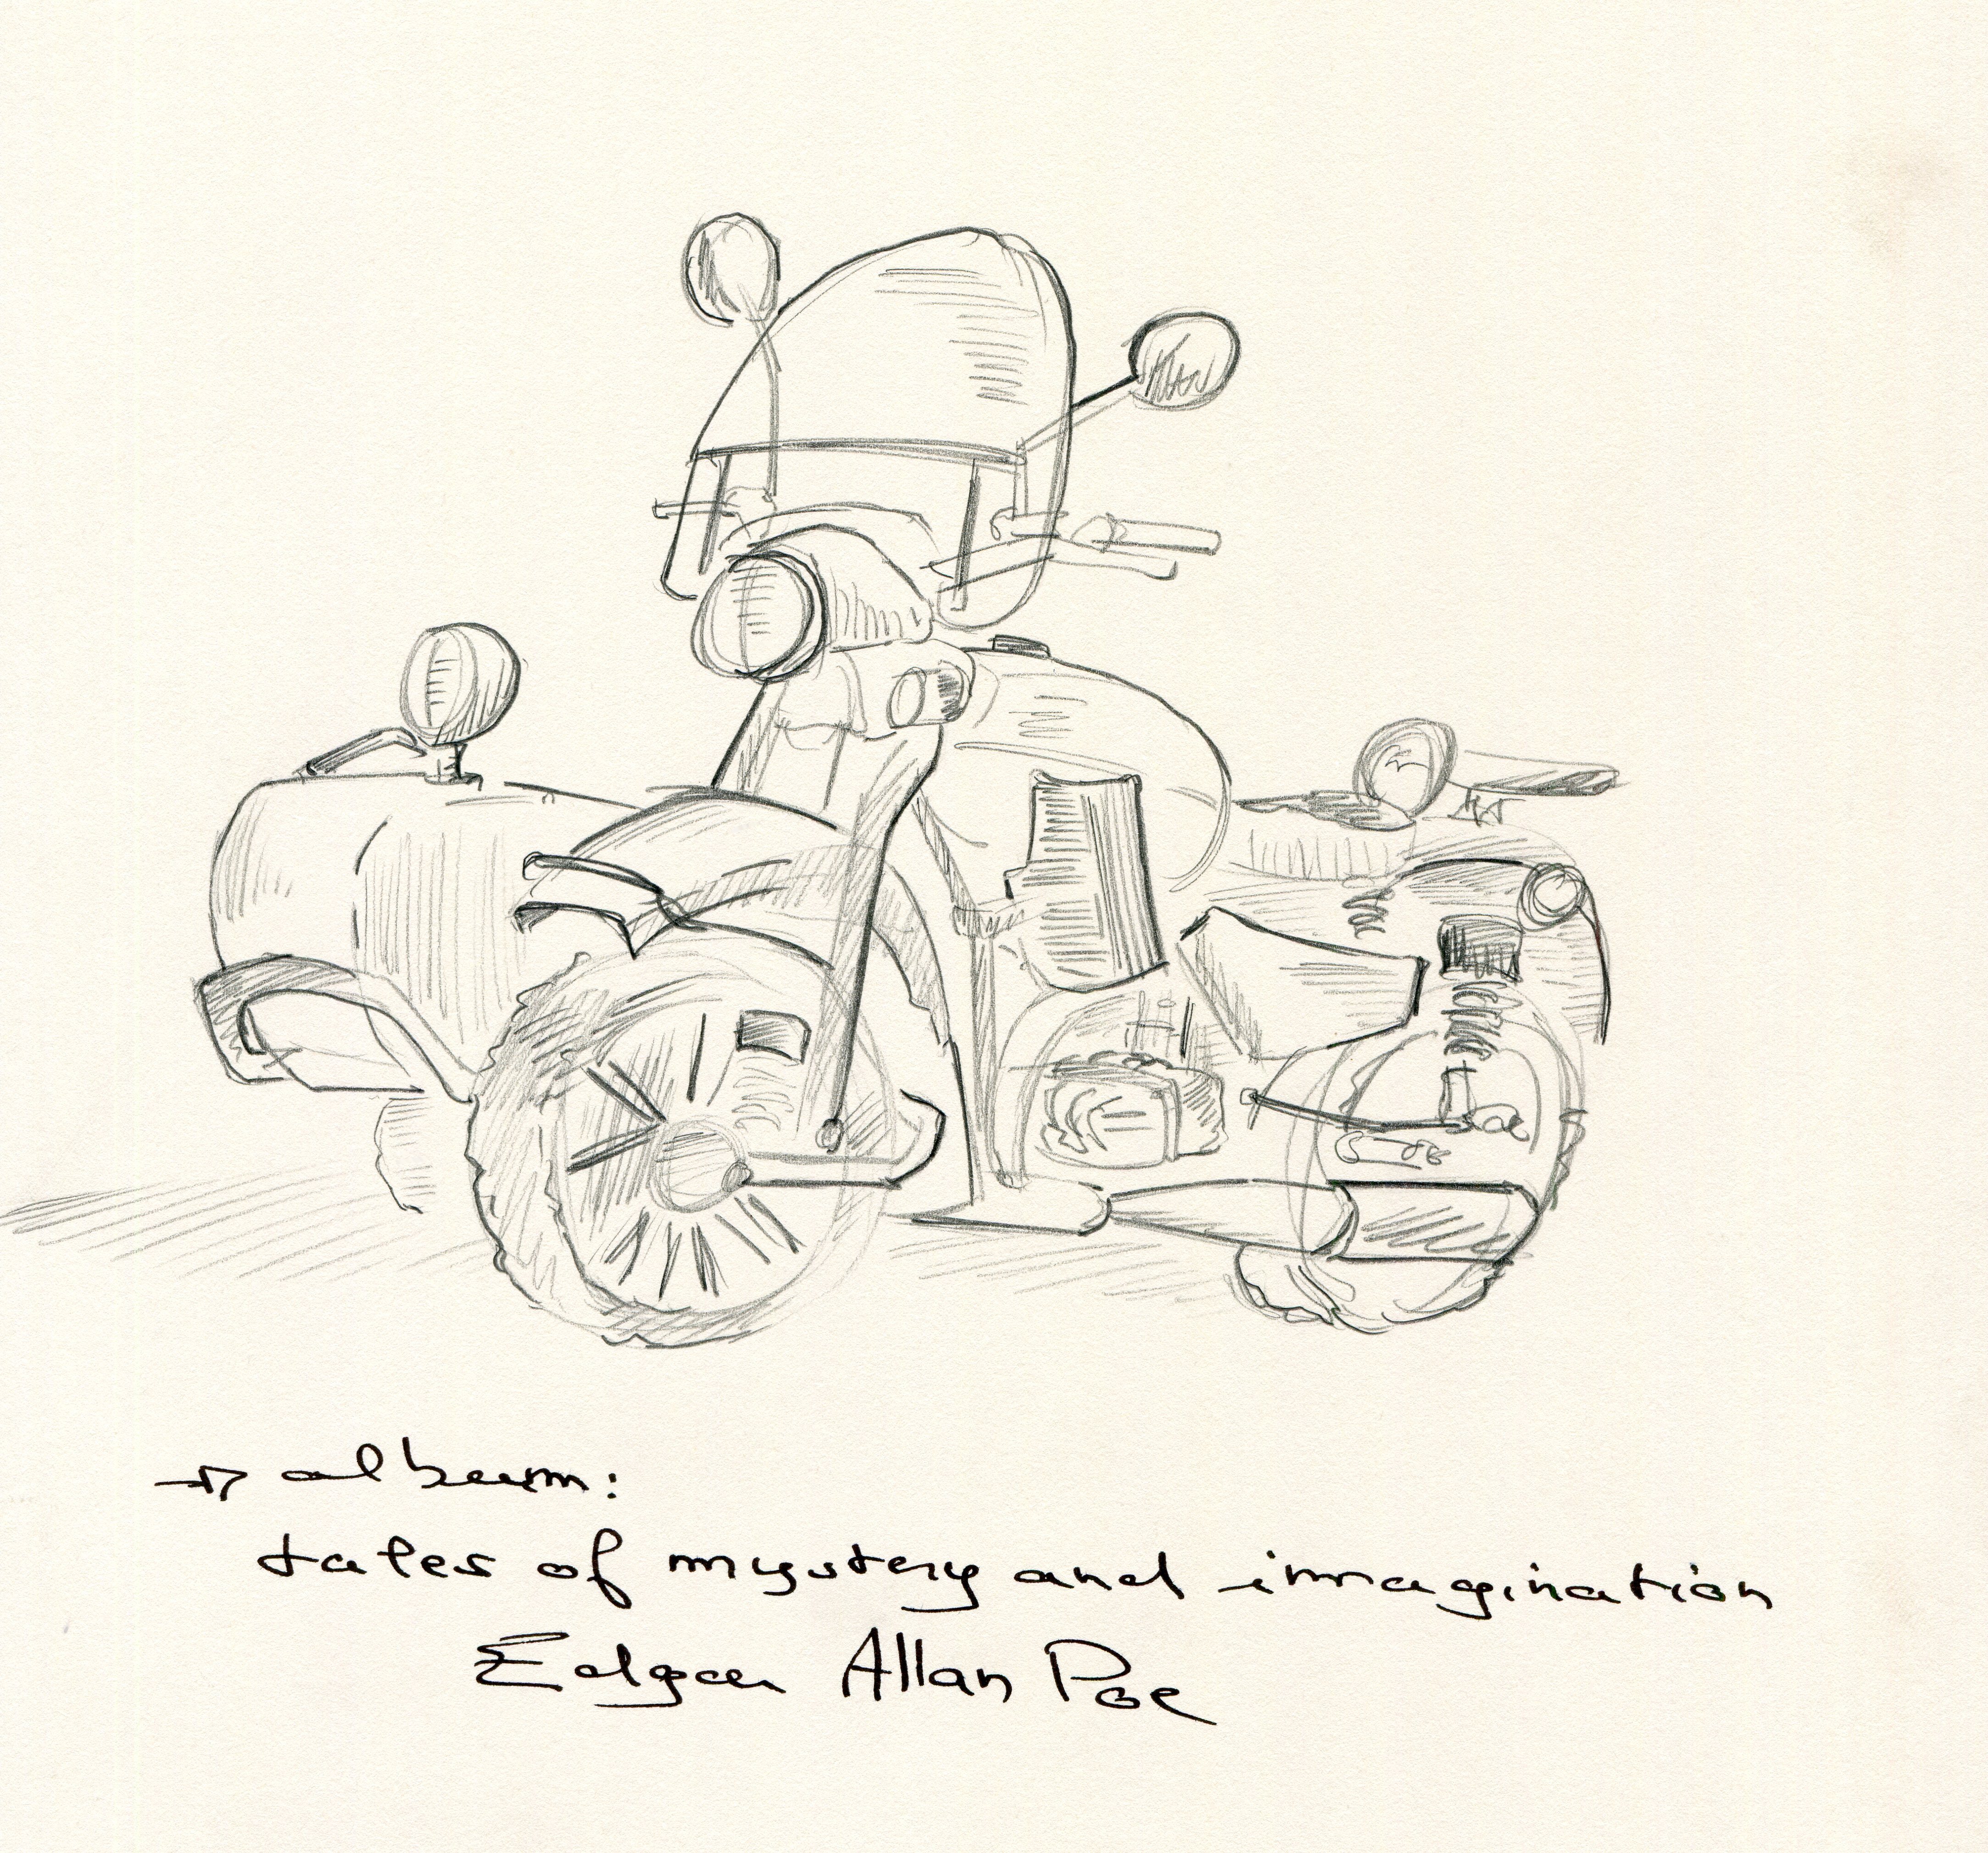 → album:
tales of mystery and imagination
Edgar Allan Poe